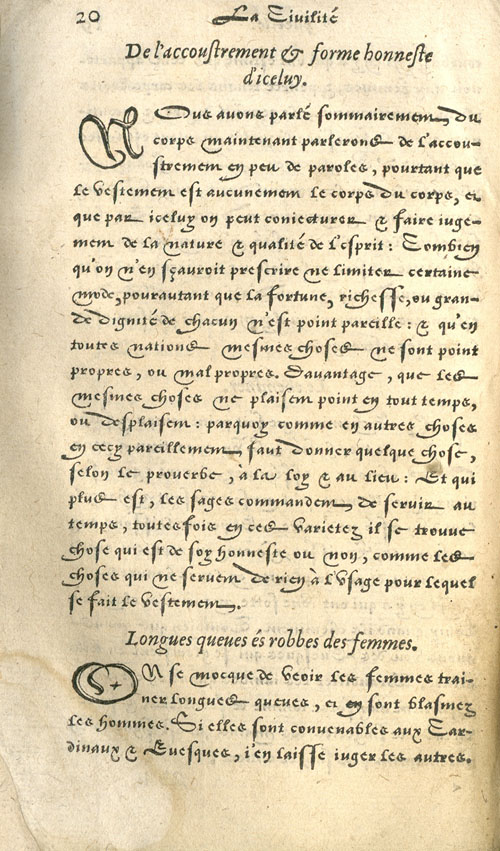 20 La Civilité
De l'accoustrement & forme honneste
d'iceluy.
NOus auons parlé sommairement du
corps maintenant parlerons de l'accou-
strement en peu de paroles, pourtant que
le vestement est aucunement le corps du corps, et
que par iceluy on peut coniecturer & faire iuge-
ment de la nature & qualité de l'esprit : Combien
qu'on n'en sçauroit prescrire ne limiter certaine
mode, pourautant que la fortune, richesse, ou gran-
de dignité de chacun n'est point pareille : & qu'en
toutes nations mesmes choses ne sont point
propres, ou mal propres. Dauantage, que les
mesmes choses ne plaisent point en tout temps,
ou desplaisent : parquoy comme en autres choses
en cecy pareillement faut donner quelque chose,
selon le prouerbe, à la loy & au lieu : Et qui
plus est, les sages commandent de seruir au
temps, toutesfois en ces varietez il se trouue
chose qui est de soy honneste ou non, comme les
choses qui ne seruent de rien à l'vsage pour lequel
se fait le vestement.
Longues queues és robbes des femmes.
ON se mocque de veoir les femmes trai-
ner longues queues, et en sont blasmez
les hommes. Si elles sont conuenables aux Car-
dinaux & Euesques, i'en laisse iuger les autres.